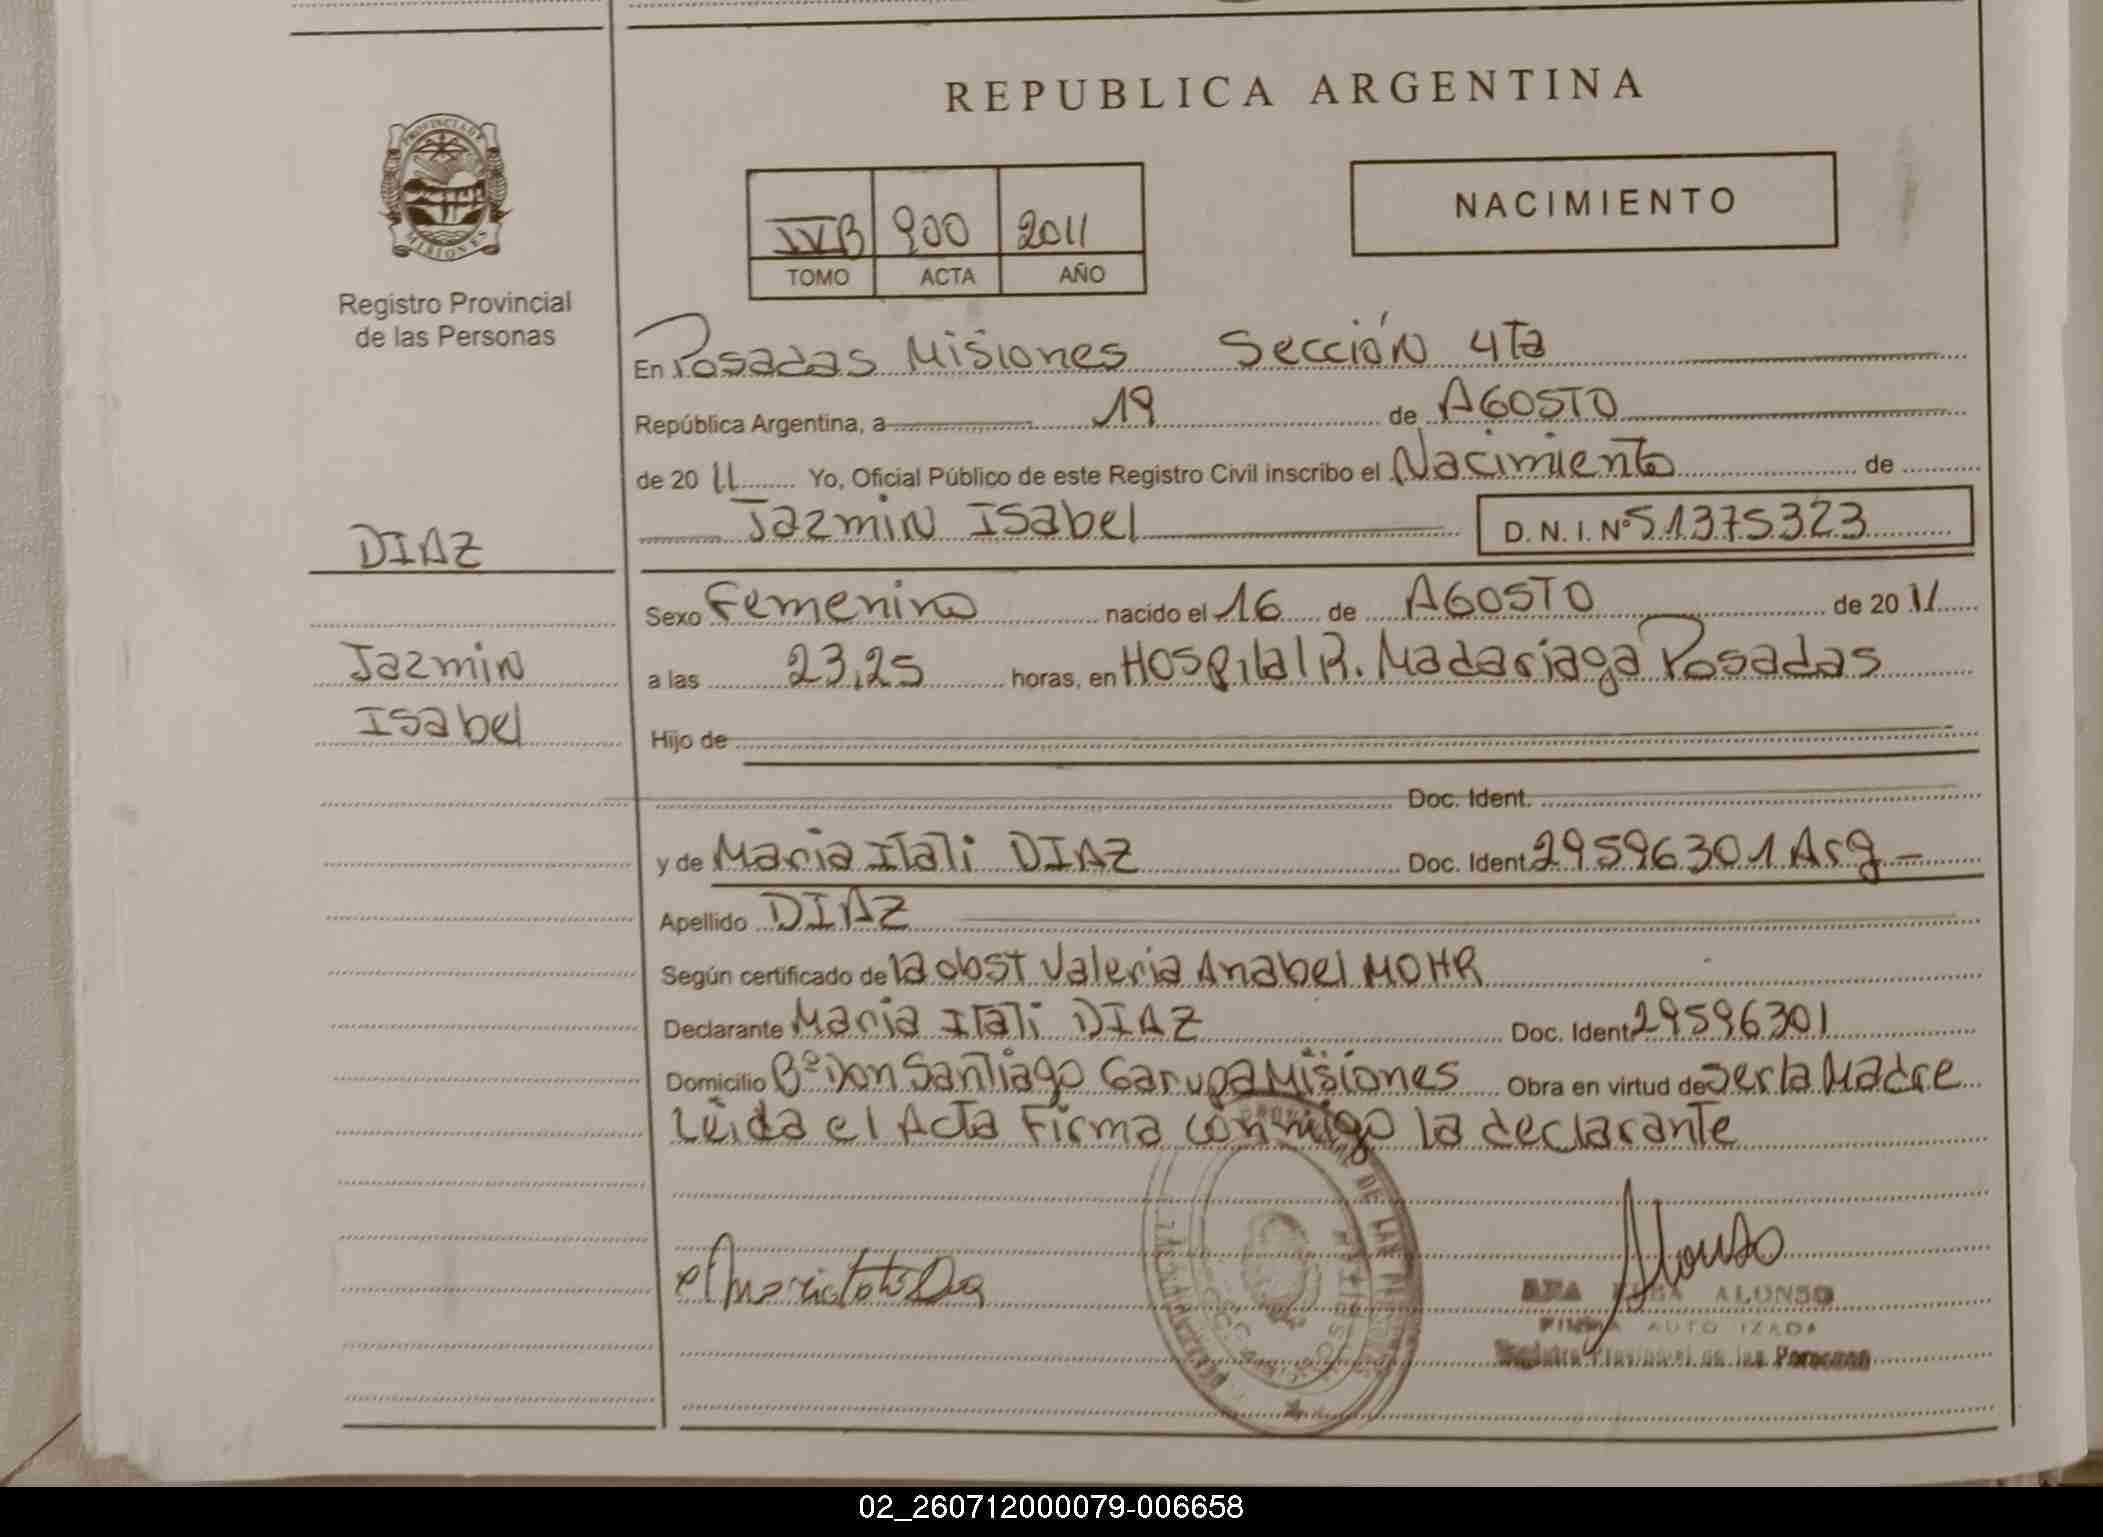 REPUBLICA ARGENTINA
PROVINCIA DE
MISIONES
Registro Provincial
de las Personas
IVB 900 2011
TOMO ACTA AÑO
NACIMIENTO
En Posadas Misiones Sección 4Ta
República Argentina, a 19 de AGOSTO
de 20 11 Yo, Oficial Público de este Registro Civil inscribo el Nacimiento de
Jazmin Isabel D. N. I. Nº 51375323
DIAZ
Jazmin
Isabel
Sexo Femenino nacido el 16 de AGOSTO de 20 11
a las 23,25 horas, en Hospital R. Madariaga Posadas
Hijo de
Doc. Ident.
y de Maria Itati DIAZ Doc. Ident. 29596301 Arg-
Apellido DIAZ
Según certificado de la obst Valeria Anabel MOHR
Declarante Maria Itati DIAZ Doc. Ident. 29596301
Domicilio Bº Don Santiago Garupa Misiones Obra en virtud de ser la Madre
Leida el Acta Firma conmigo la declarante
Alonso
ALONSO
FIRMA AUTORIZADA
Registro Provincial de las Personas
02_260712000079-006658